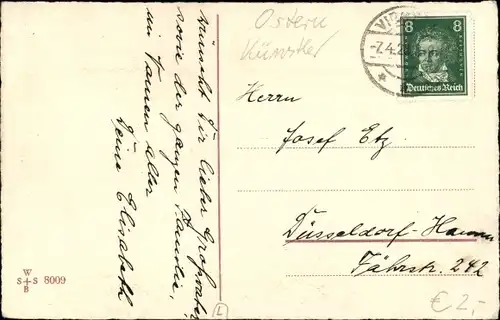 wünscht Dir lieber Großvater
sowie der ganzen Familie,
im Namen aller
Deine Elisabeth
Ostern
Künstler
-7.4.2
8 8
Deutsches Reich
Herrn
Josef Etz.
Düsseldorf-Hamm
Fährstr. 242
W
S+S 8009
B
L
€ 2,-